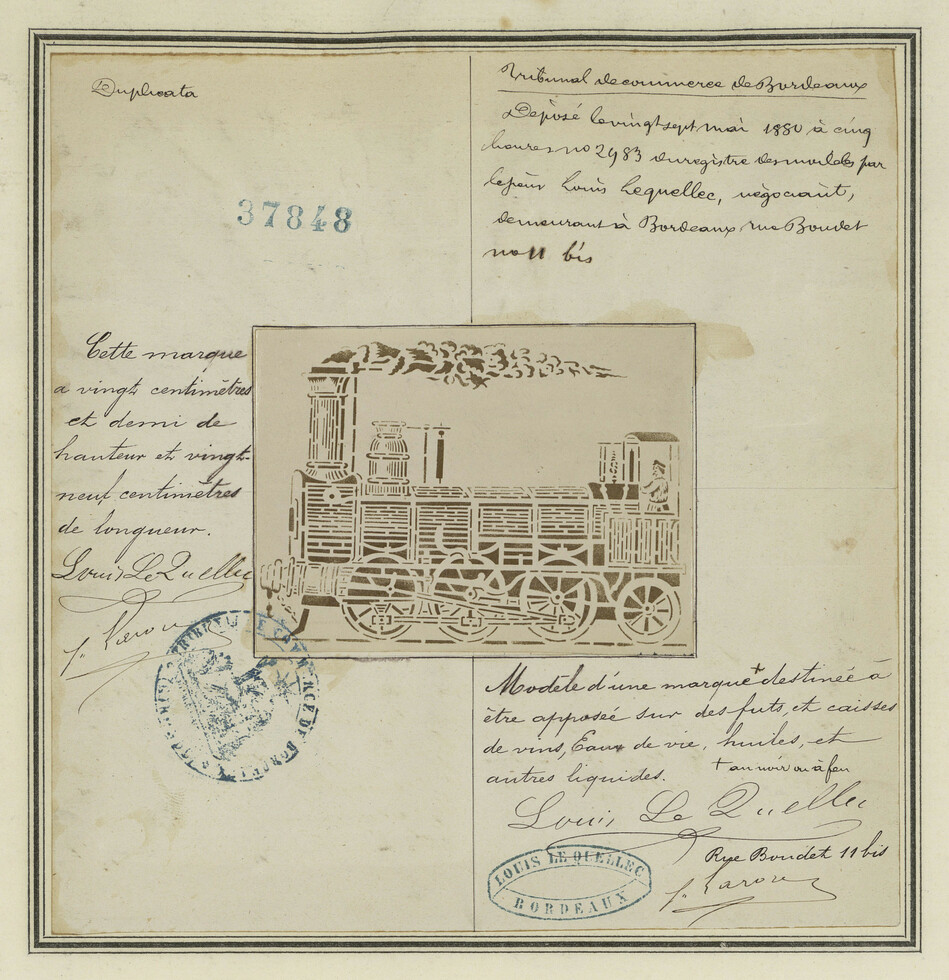 Duplicata
37848
Tribunal de commerce de Bordeaux
Déposé le vingt sept mai 1880 à cinq
heures no 2983 du registre des modèles par
le sieur Louis Lequellec, négociant,
demeurant à Bordeaux rue Boudet
no 11 bis
Cette marque
a vingt centimètres
et demi de
hauteur et vingt-
neuf centimètres
de longueur.
Louis Le Quellec
TRIBUNAL DE COMMERCE DE BORDEAUX
Modèle d'une marque + destinée à
être apposée sur des futs, et caisses
de vins, Eaux de vie, huiles, et
autres liquides. + au noir ou à feu
Louis Le Quellec
Rue Boudet 11 bis
LOUIS LE QUELLEC
BORDEAUX